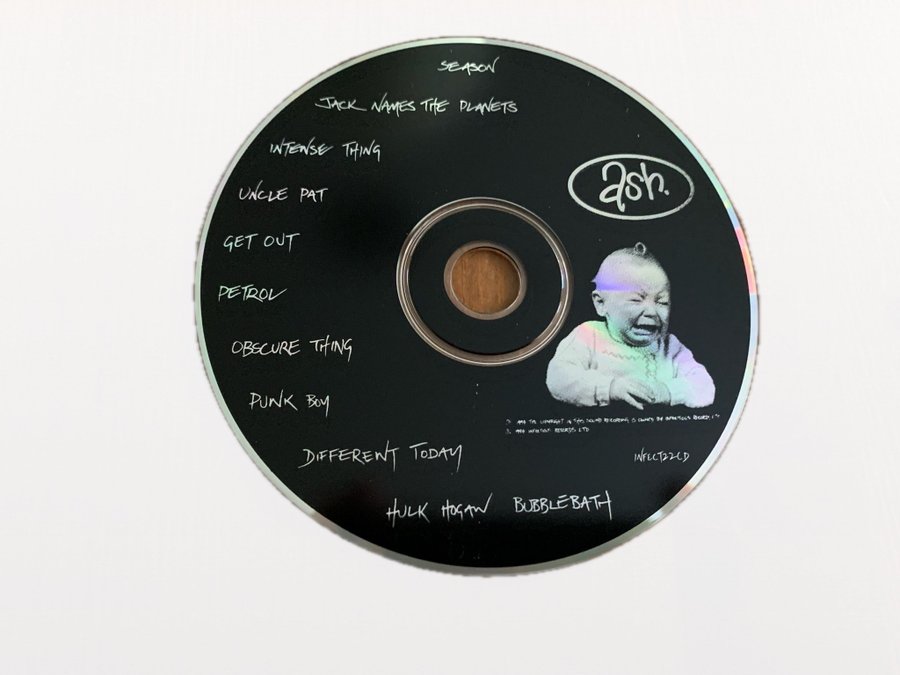 SEASON
JACK NAMES THE PLANETS
INTENSE THING
UNCLE PAT
GET OUT
PETROL
OBSCURE THING
PUNK BOY
DIFFERENT TODAY
HULK HOGAN BUBBLEBATH
ash.
THE COPYRIGHT IN THIS SOUND RECORDING IS OWNED BY INFECTIOUS RECORDS LTD
INFECTIOUS RECORDS LTD
INFECT22CD